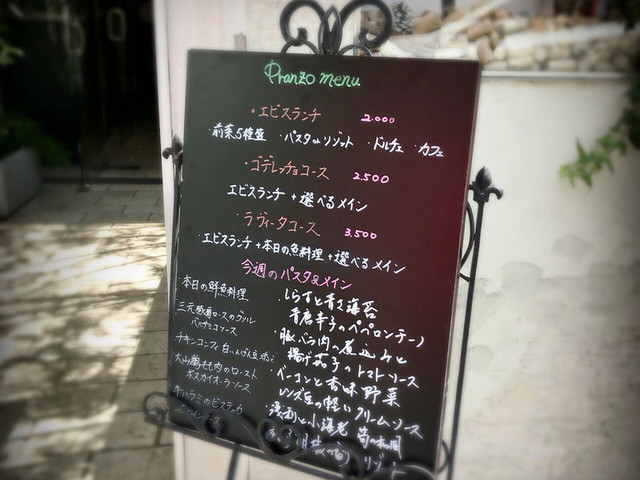 Pranzo menu
・エビスランチ 2.000
・前菜5種盛 ・パスタorリゾット ・ドルチェ ・カフェ
・ゴデレッチョコース 2.500
エビスランチ + 選べるメイン
・ラヴィータコース 3.500
・エビスランチ + 本日の魚料理 + 選べるメイン
今週のパスタ&メイン
・本日の鮮魚料理
三元豚肩ロースのグリル
バルサミコソース
チキンコンフィ 白いんげん豆
大山鶏もも肉のロースト
ボスカイオーラソース
牛ハラミのビステッカ
・しらすと青さ海苔
青唐辛子のペペロンチーノ
・豚バラ肉の煮込みと
揚げ茄子のトマトソース
・ベーコンと香味野菜
レンズ豆の軽いクリームソース
・浅利と小海老
リゾット